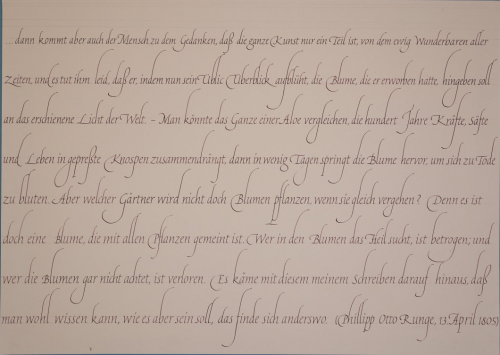 dann kommt aber auch der Mensch zu dem Gedanken, daß die ganze Kunst nur ein Teil ist, von dem ewig Wunderbaren aller
Zeiten, und es tut ihm leid, daß er, indem nun sein Überblick aufblüht, die Blume, die er erworben hatte, hingeben soll
an das erschienene Licht der Welt. – Man könnte das Ganze einer Aloe vergleichen, die hundert Jahre Kräfte, Säfte
und Leben in gepreßte Knospen zusammendrängt, dann in wenig Tagen springt die Blume hervor, um sich zu Tode
zu bluten. Aber welcher Gärtner wird nicht doch Blumen pflanzen, wenn sie gleich vergehen? Denn es ist
doch eine Blume, die mit allen Pflanzen gemeint ist. Wer in den Blumen das Theil sucht, ist betrogen; und
wer die Blumen gar nicht achtet, ist verloren. Es käme mit diesem meinem Schreiben darauf hinaus, daß
man wohl wissen kann, wie es aber sein soll, das finde sich anderswo. (Phillipp Otto Runge, 13. April 1805)